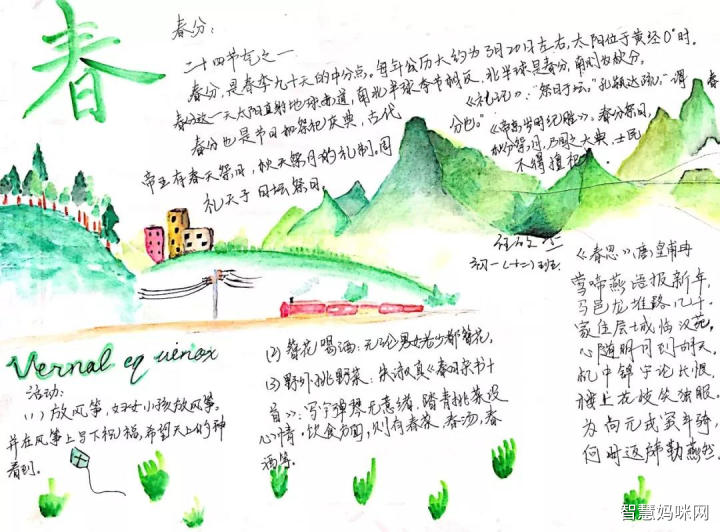 春
春分:
二十四节气之一
春分,是春季九十天的中分点。每年公历大约为3月20日左右,太阳位于黄经0°时。
春分这一天太阳直射地球赤道,南北半球季节相反,北半球是春分,南则为秋分。
春分也是节日和祭祀庆典,古代
帝王有春天祭日,秋天祭月的礼制。周
礼天子日坛祭日。
《礼记》:"祭日于坛。"孔颖达疏:"谓春
分也。"《帝京岁时纪胜》:春分祭日,
秋分祭月,乃国之大典,士民
不得擅祀。
初一(十二)班
《春思》唐皇甫冉
莺啼燕语报新年,
马邑龙堆路几千。
家住层城临汉苑,
心随明月到胡天。
机中锦字论长恨,
楼上花枝笑独眠。
为问元戎窦车骑,
何时返旆勒燕然。
Vernal equinox
活动:
(1)放风筝,妇女小孩放风筝,
并在风筝上写下祝福,希望天上的神
看到。
(2)簪花喝酒:无论男女老少都簪花。
(3)野外挑野菜:朱淑真《春日杂书十
首》:写字弹琴无意绪,踏青挑菜没
心情。饮食方面,则有春菜、春汤,春
酒等。
智慧妈咪网